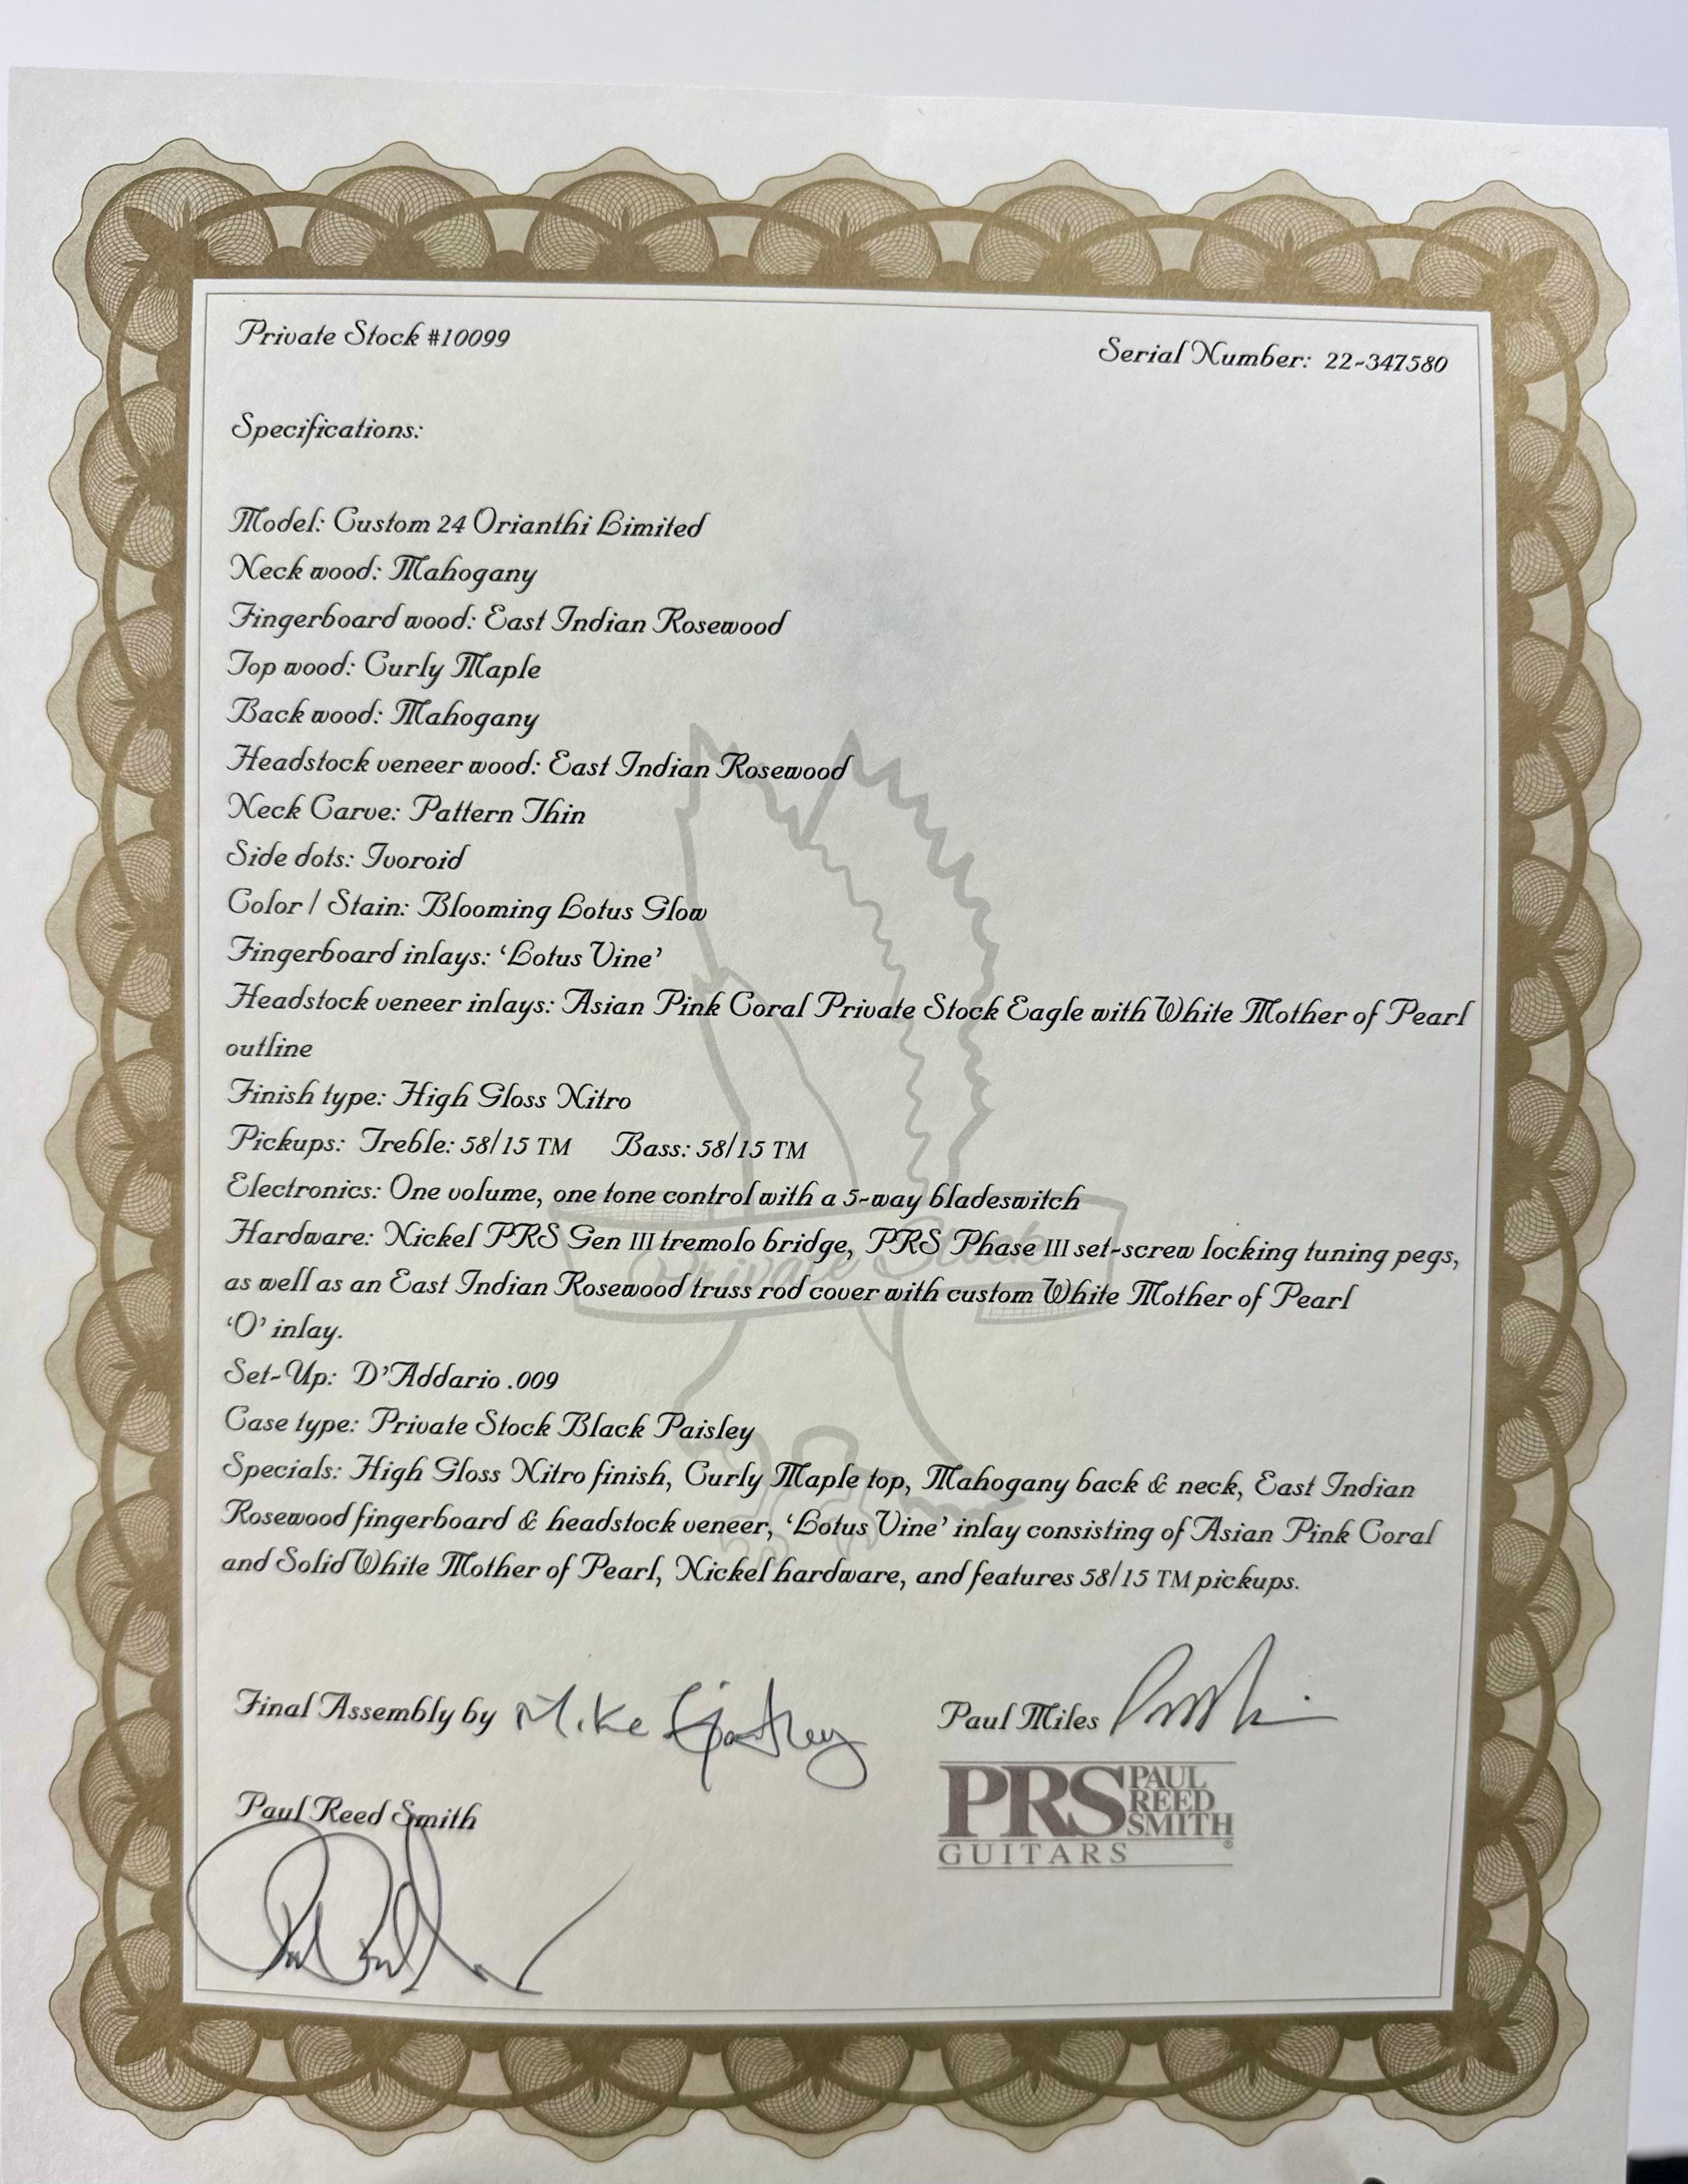 Private Stock #10099
Serial Number: 22-347580
Specifications:
Model: Custom 24 Orianthi Limited
Neck wood: Mahogany
Fingerboard wood: East Indian Rosewood
Top wood: Curly Maple
Back wood: Mahogany
Headstock veneer wood: East Indian Rosewood
Neck Carve: Pattern Thin
Side dots: Ivoroid
Color / Stain: Blooming Lotus Glow
Fingerboard inlays: ‘Lotus Vine’
Headstock veneer inlays: Asian Pink Coral Private Stock Eagle with White Mother of Pearl
outline
Finish type: High Gloss Nitro
Pickups: Treble: 58/15 TM Bass: 58/15 TM
Electronics: One volume, one tone control with a 5-way bladeswitch
Hardware: Nickel PRS Gen III tremolo bridge, PRS Phase III set-screw locking tuning pegs,
Private Stock
as well as an East Indian Rosewood truss rod cover with custom White Mother of Pearl
‘O’ inlay.
Set-Up: D’Addario .009
Case type: Private Stock Black Paisley
Specials: High Gloss Nitro finish, Curly Maple top, Mahogany back & neck, East Indian
Rosewood fingerboard & headstock veneer, ‘Lotus Vine’ inlay consisting of Asian Pink Coral
and Solid White Mother of Pearl, Nickel hardware, and features 58/15 TM pickups.
Final Assembly by Mike
Paul Miles
Paul Reed Smith
PRS PAUL
REED
SMITH
GUITARS ®